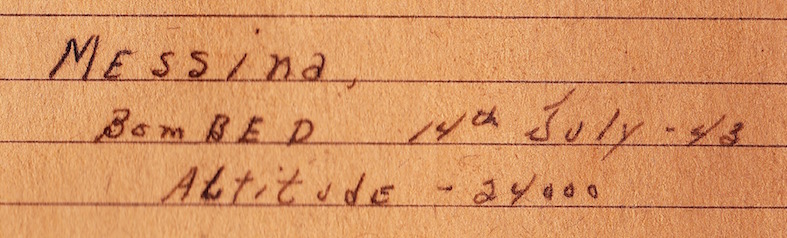 Messina,
BomBED 14th July - 43
Altitude - 24000